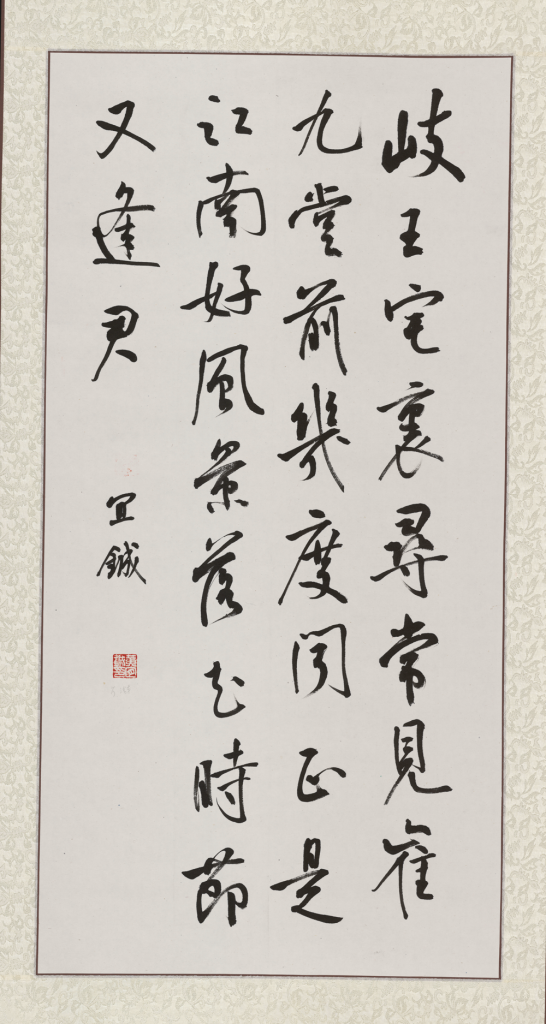 岐王宅裏尋常見崔
九堂前幾度聞正是
江南好風景落花時節
又逢君
宜鋮